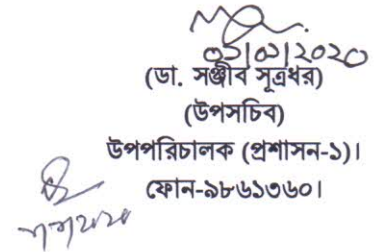 (ডা. সঞ্জীব সূত্রধর)
(উপসচিব)
উপপরিচালক (প্রশাসন-১)।
ফোন-৯৮৬১৩৬০।